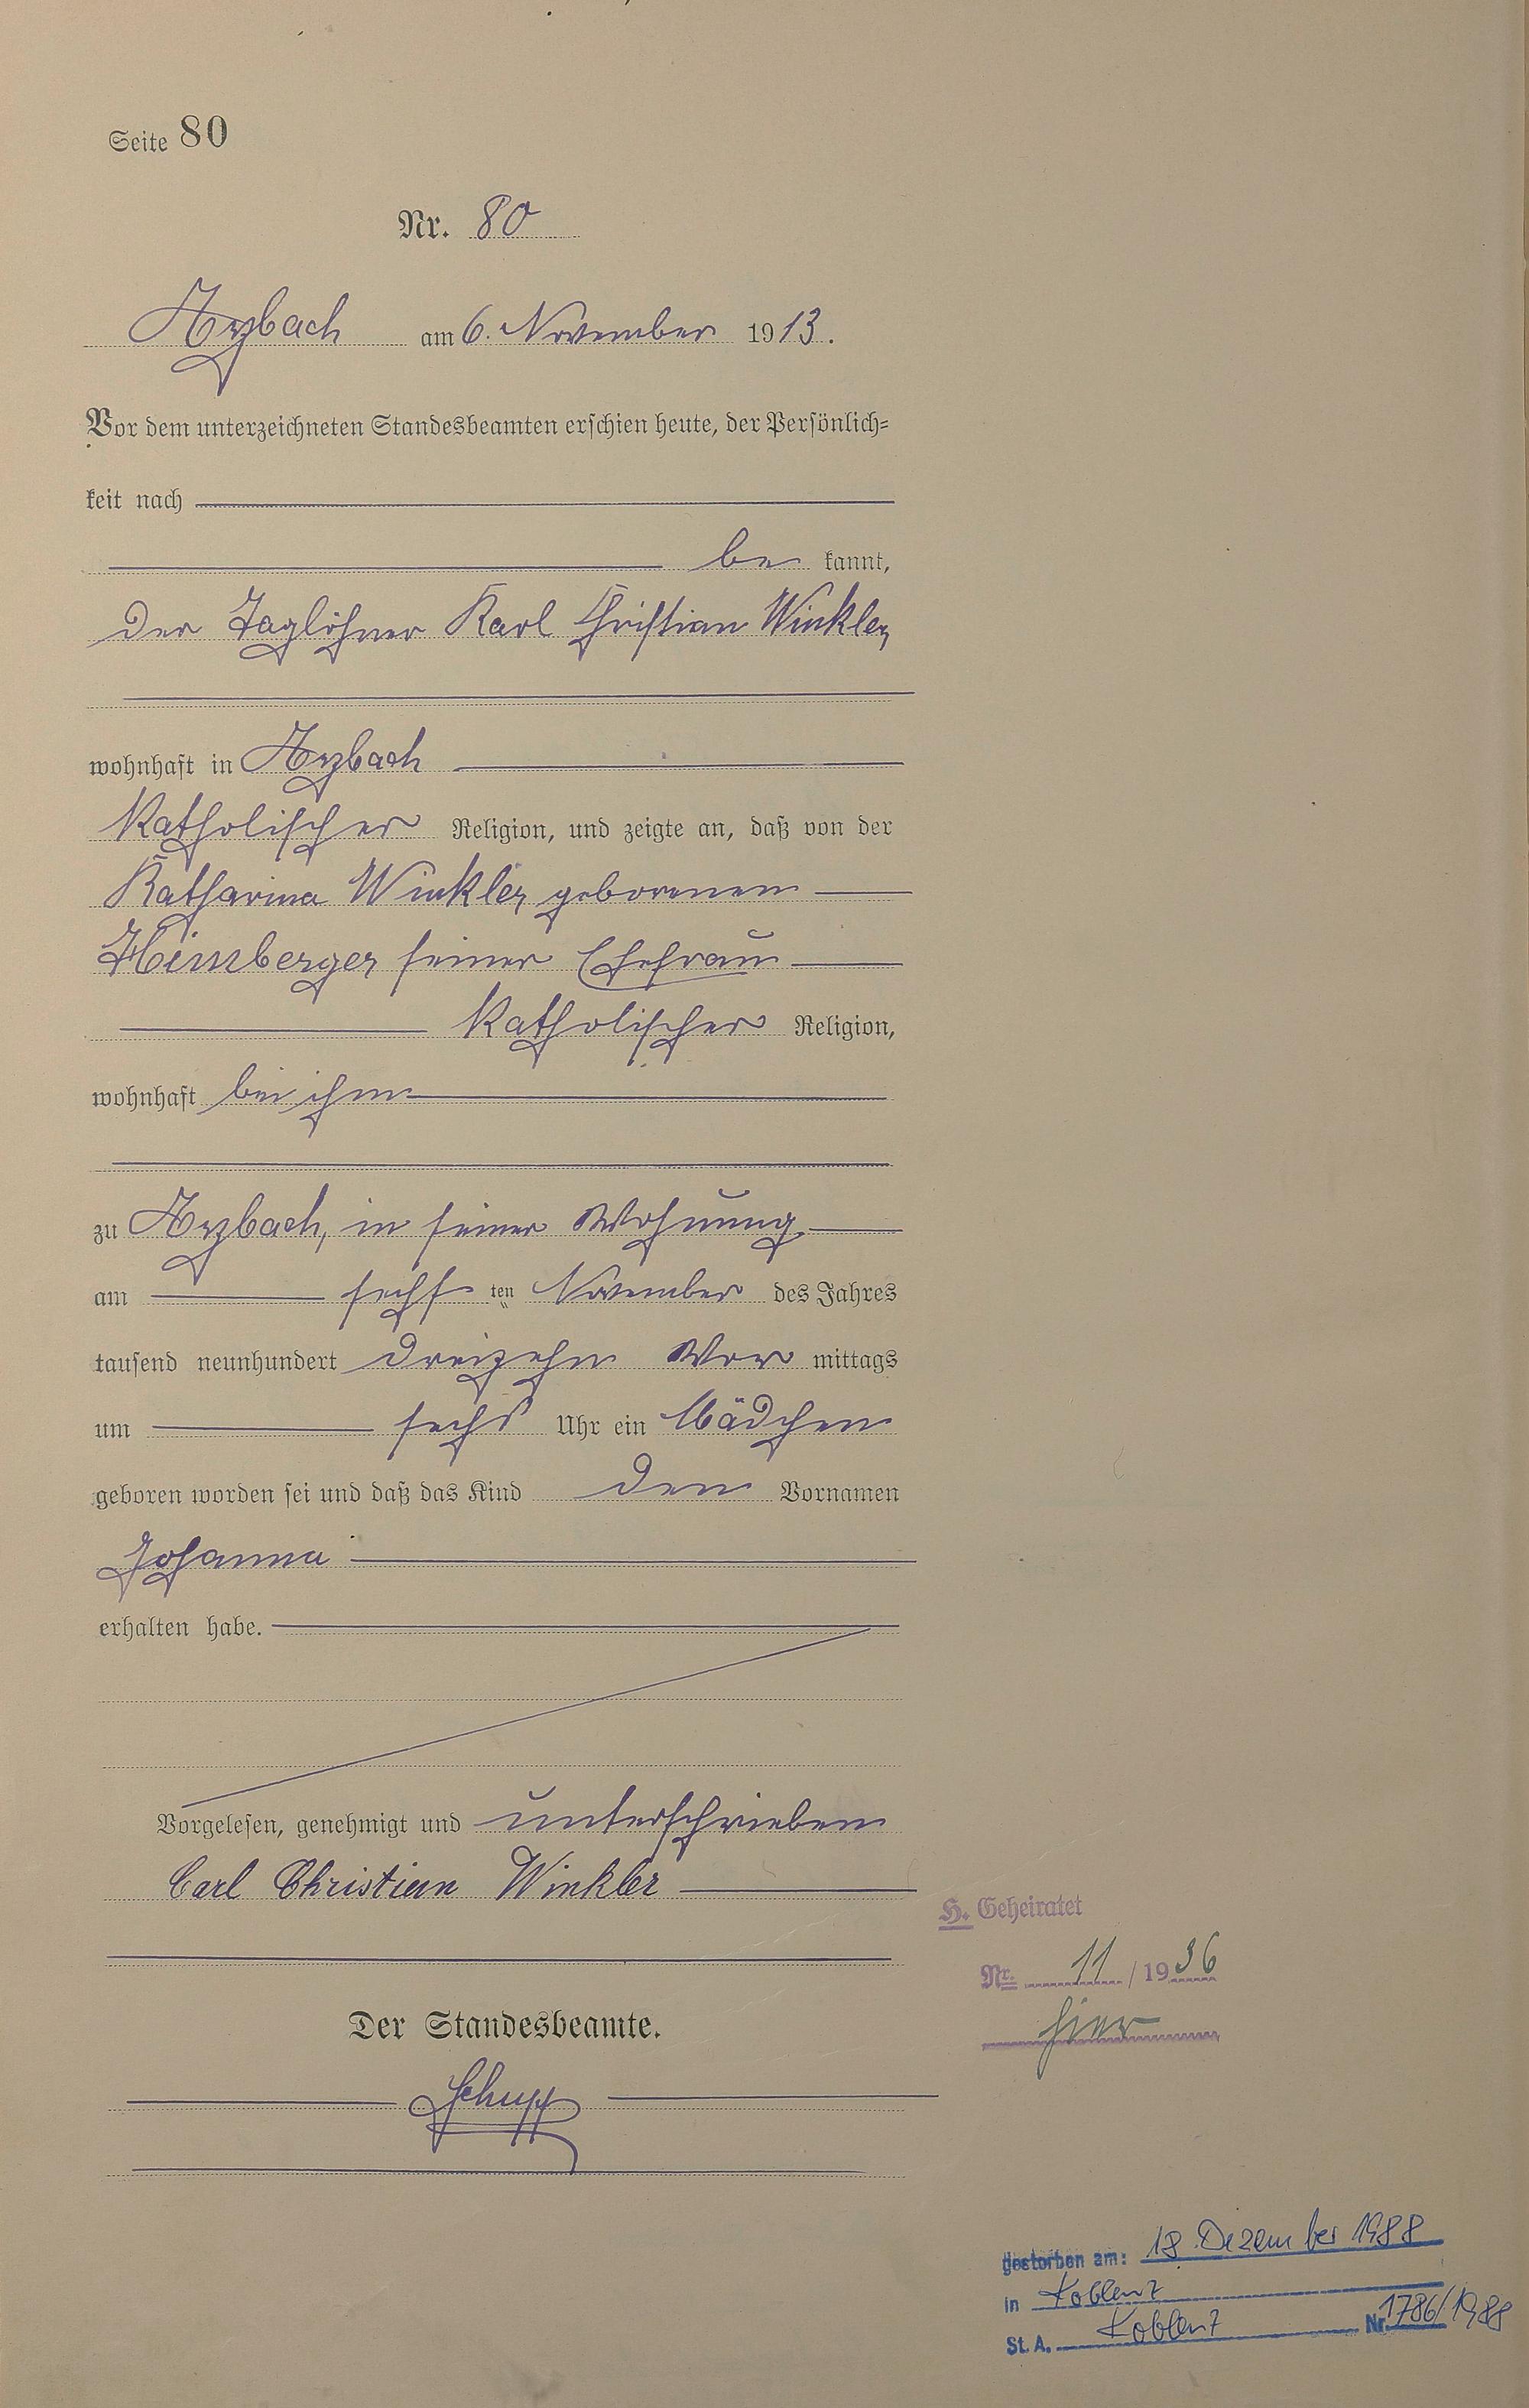 Seite 80
Nr. 80
Arzbach am 6. November 1913.
Vor dem unterzeichneten Standesbeamten erschien heute, der Persönlich=
keit nach
be kannt,
der Taglöhner Karl Christian Winkler,
wohnhaft in Arzbach
katholischer Religion, und zeigte an, daß von der
Katharina Winkler, geborenen
Heimberger seiner Ehefrau
katholischer Religion,
wohnhaft bei ihm
zu Arzbach, in seiner Wohnung
am sechs ten November des Jahres
tausend neunhundert dreizehn Vor mittags
um sechs Uhr ein Mädchen
geboren worden sei und daß das Kind den Vornamen
Johanna
erhalten habe.
Vorgelesen, genehmigt und unterschrieben
Carl Christian Winkler
H. Geheiratet
Nr. 11 / 1936
hier
Der Standesbeamte.
Schupp
gestorben am: 18. Dezember 1988
in Koblenz
St. A. Koblenz Nr. 1786/1988